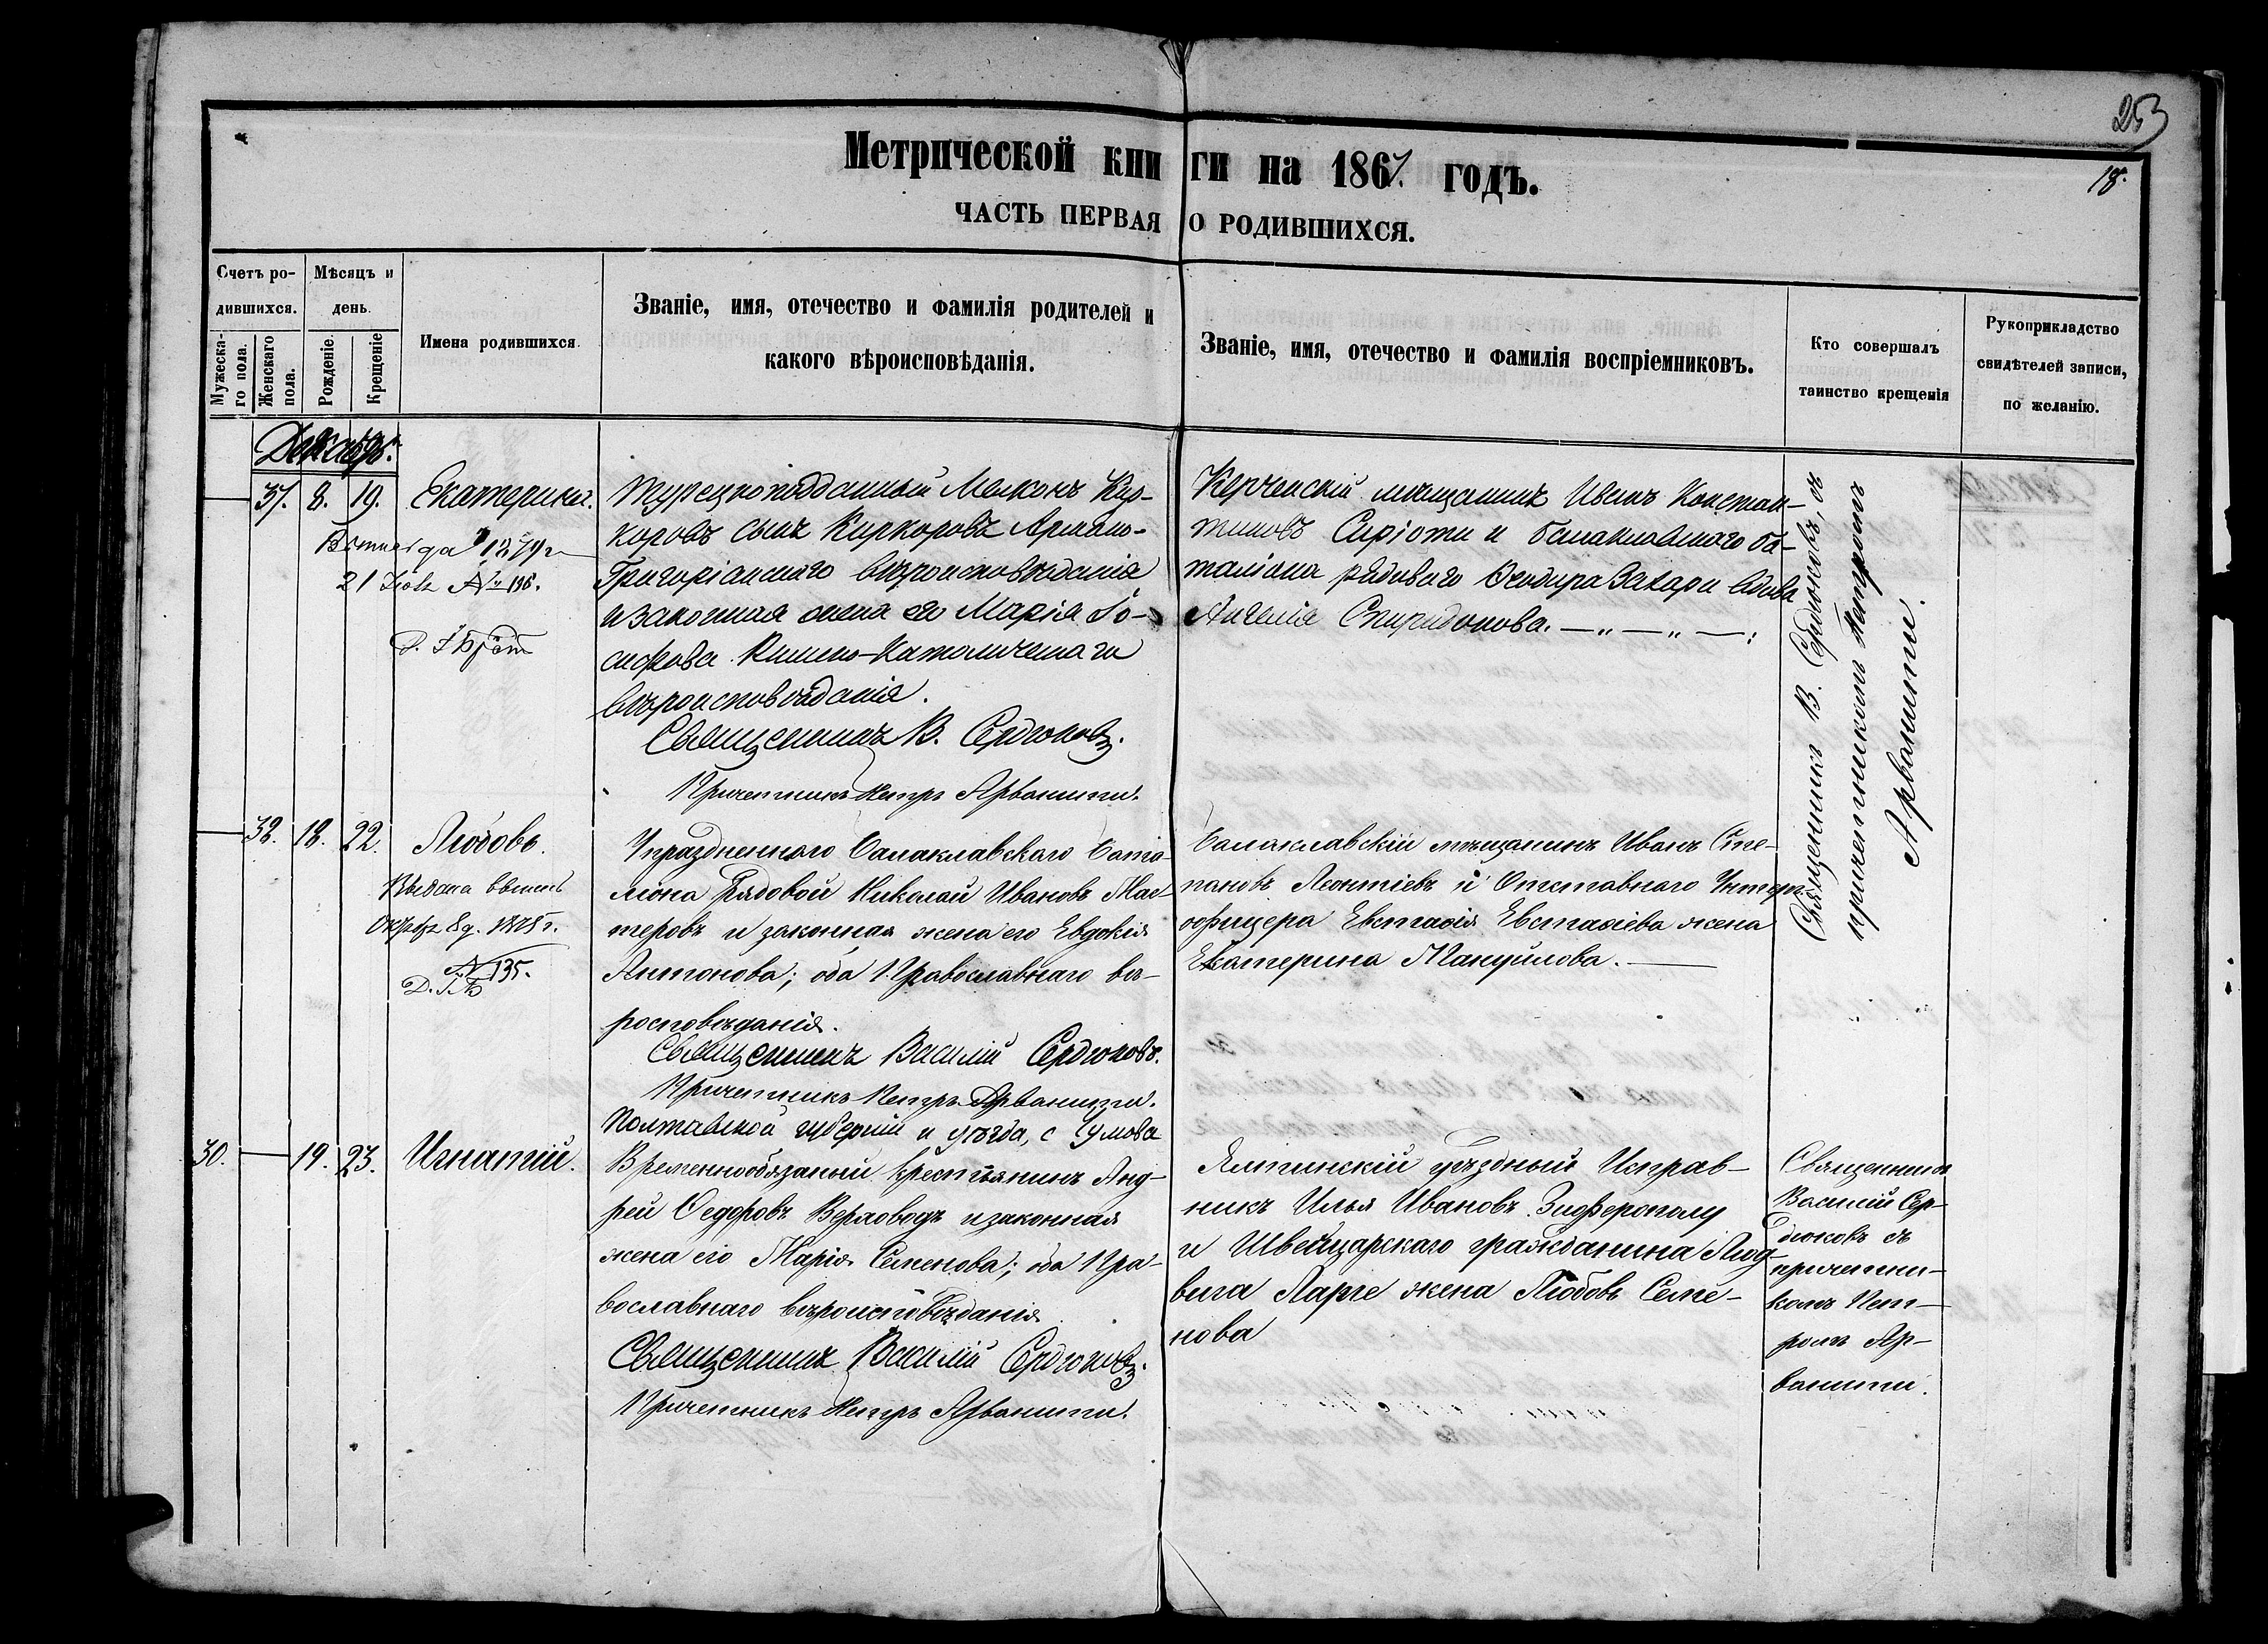 253
18.
Метрической книги на 1867. годъ.
ЧАСТЬ ПЕРВАЯ О РОДИВШИХСЯ.
Счетъ ро-
дившихся.
Мужеска-
го пола.
Женскаго
пола.
Мѣсяцъ и
день.
Рожденіе.
Крещеніе
Имена родившихся.
Званіе, имя, отечество и фамилія родителей и
какого вѣроисповѣданія.
Званіе, имя, отечество и фамилія воспріемниковъ.
Кто совершалъ
таинство крещенія
Рукоприкладство
свидѣтелей записи,
по желанію.
Декабрь.
37. 8. 19. Екатерина.
1879 г
21 № 136.
Турецкоподданный Мелконъ Кир-
коровъ сынъ Киркоровъ Армяно-
Григоріанскаго вѣроисповѣданія
и законная жена его Марія Іо-
сифова Римско-Католическаго
вѣроисповѣданія.
Священникъ В. Сердюковъ.
Причетникъ Петръ Арванити.
Керченскій мѣщанинъ Иванъ Констан-
тиновъ Сиріоти и балаклавскаго ба-
таліона рядоваго Ѳеодора Захари вдова
Ангелія Спиридонова.
Священникъ В. Сердюковъ, съ
причетникомъ Петромъ
Арванити.
38. 18. 22. Любовь.
8 д. 1878 г.
№ 135.
Упраздненнаго Балаклавскаго Бата-
ліона Рядовой Николай Ивановъ Мас-
теровъ и законная жена его Евдокія
Антонова; оба Православнаго вѣ-
роисповѣданія.
Священникъ Василій Сердюковъ.
Причетникъ Петръ Арванити.
Балаклавскій мѣщанинъ Иванъ Сте-
пановъ Леонтіевъ и Отставнаго Унтеръ
офицера Евстафія Евстафіева жена
Екатерина Мануйлова.
30. 19. 23. Игнатій.
Полтавской губерніи и уѣзда, с
Временнообязаный крестьянинъ Анд-
рей Ѳедоровъ Верховодъ и законная
жена его Марія Семенова; оба Пра-
вославнаго вѣроисповѣданія
Священникъ Василій Сердюковъ.
Причетникъ Петръ Арванити.
Ялтинскій уѣздный Исправ-
никъ Илья Ивановъ Зифферополу
и Швейцарскаго гражданина Люд-
вига Ларге жена Любовь Семе-
нова
Священникъ
Василій Сер-
дюковъ съ
причетни-
комъ Пет-
ромъ Ар-
ванити.